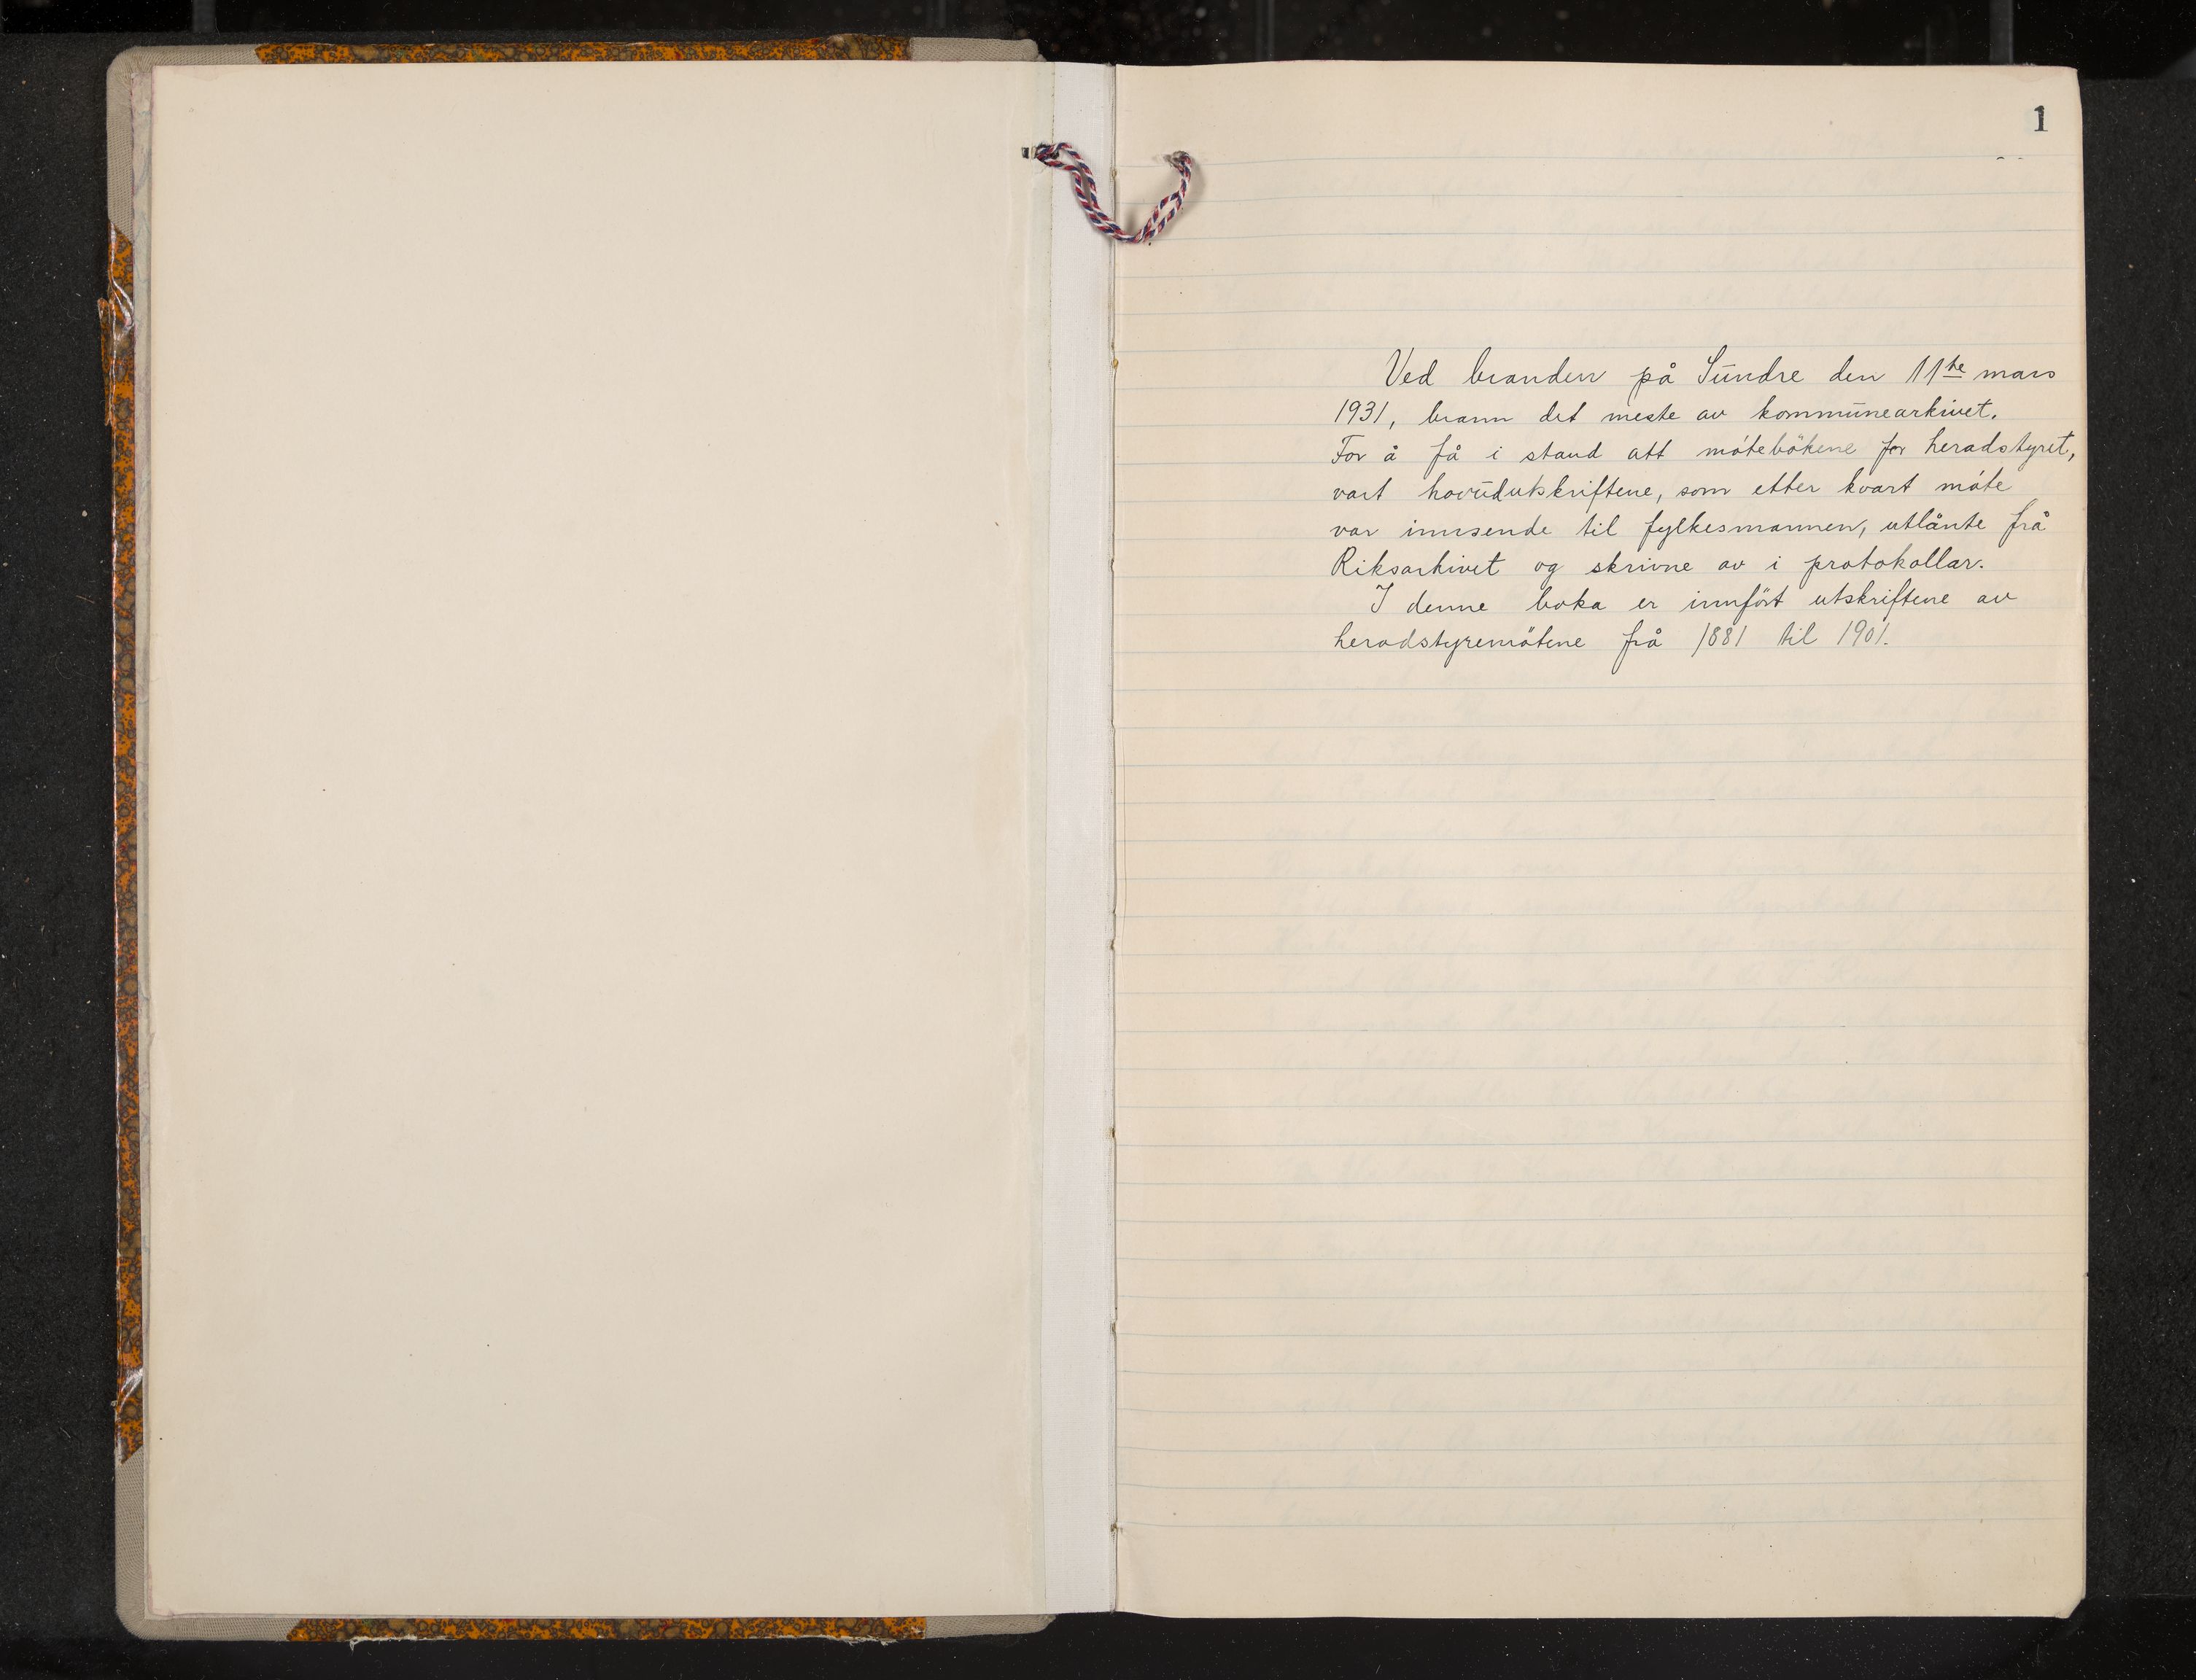 1
Ved branden på Sundre den 11te mars
1931, brann det meste av kommunearkivet.
For å få i stand att mötebökene for heradstyret,
vart hovudutskriftene, som etter kvart möte
var innsende til fylkesmannen, utlånte frå
Riksarkivet og skrivne av i protokollar.
I denne boka er innfört utskriftene av
heradstyremötene frå 1881 til 1901.